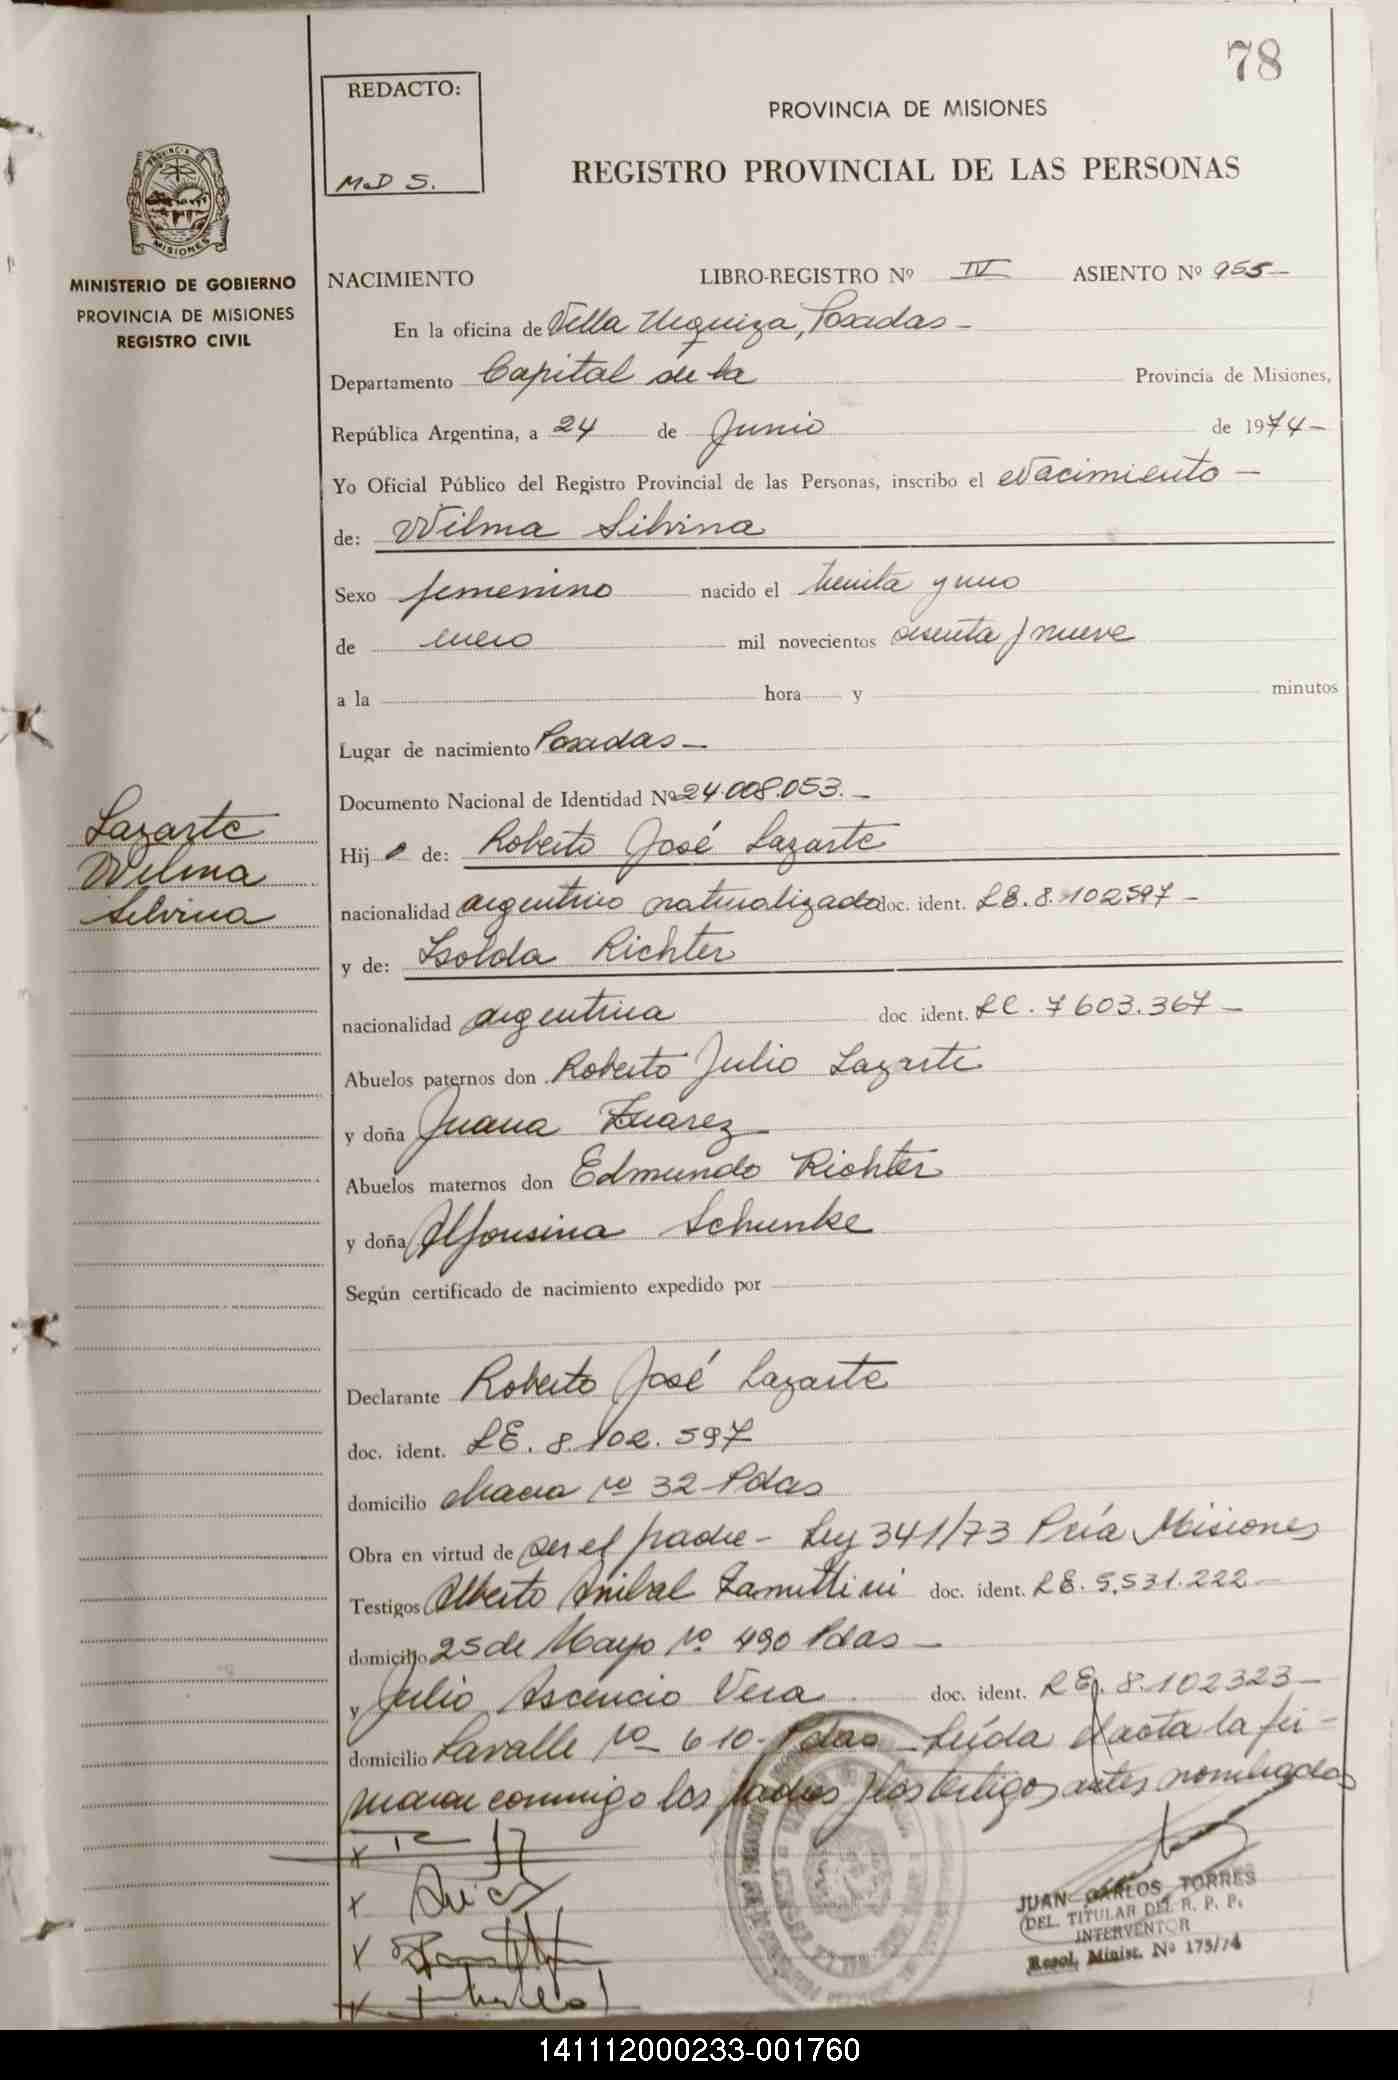 78
REDACTO:
M.D S.
PROVINCIA DE MISIONES
REGISTRO PROVINCIAL DE LAS PERSONAS
PROVINCIA DE
MISIONES
MINISTERIO DE GOBIERNO
PROVINCIA DE MISIONES
REGISTRO CIVIL
NACIMIENTO LIBRO-REGISTRO Nº IV ASIENTO Nº 955-
En la oficina de Villa Urquiza, Posadas -
Departamento Capital de la Provincia de Misiones,
República Argentina, a 24 de Junio de 1974-
Yo Oficial Público del Registro Provincial de las Personas, inscribo el Nacimiento -
de: Wilma Silvina
Sexo femenino nacido el treinta y uno
de enero mil novecientos sesenta y nueve
a la hora y minutos
Lugar de nacimiento Posadas -
Documento Nacional de Identidad Nº 24.008.053. -
Lazarte
Wilma
Silvina
Hij a de: Roberto José Lazarte
nacionalidad argentino naturalizado doc. ident. LE. 8.102597 -
y de: Isolda Richter
nacionalidad argentina doc ident. LC. 7603.367 -
Abuelos paternos don Roberto Julio Lazarte
y doña Juana Zuarez
Abuelos maternos don Edmundo Richter
y doña Alfonsina Schunke
Según certificado de nacimiento expedido por
Declarante Roberto José Lazarte
doc. ident. LE. 8.102.597
domicilio chacra nº 32 Pdas
Obra en virtud de ser el padre - Ley 341/73 Pcía Misiones
Testigos Alberto Anibal doc. ident. LE. 5.531.222 -
domicilio 25 de Mayo nº 490 Pdas -
y Julio Ascencio Vera doc. ident. LE. 8.102323 -
domicilio Lavalle nº 610 - Pdas - Leída el acta la fir-
maron conmigo los padres y los testigos antes nombrados
JUAN CARLOS TORRES
DEL. TITULAR DEL R. P. P.
INTERVENTOR
Resol. Minist. Nº 175/74
141112000233-001760